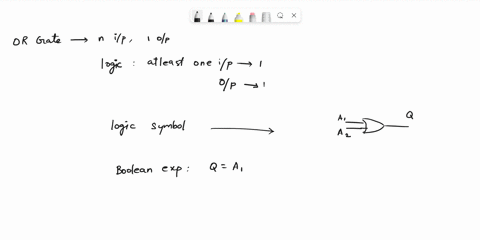 OR Gate → n i/p, 1 o/p
logic : atleast one i/p → 1
o/p → 1
logic symbol → A₁ A₂ Q
Boolean exp : Q = A₁